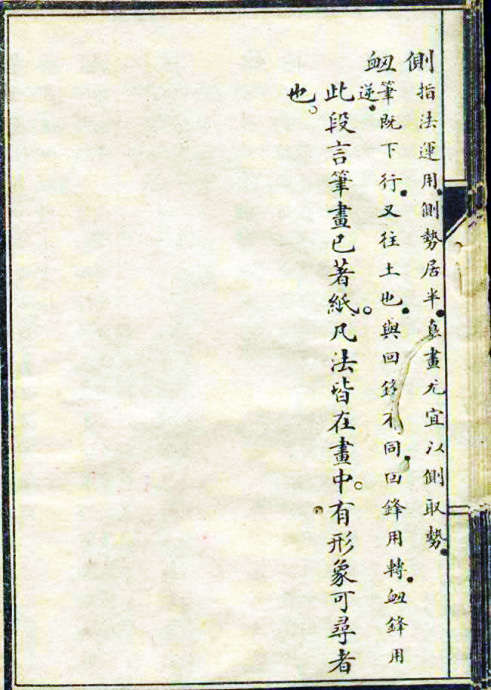 側 指法運用。側勢居半。直畫尤宜以側取勢。
衄 筆既下行。又往土也。與回鋒不同。回鋒用轉。衄鋒用
逆。
此段言筆畫已著紙。凡法皆在畫中。有形象可尋者
也。